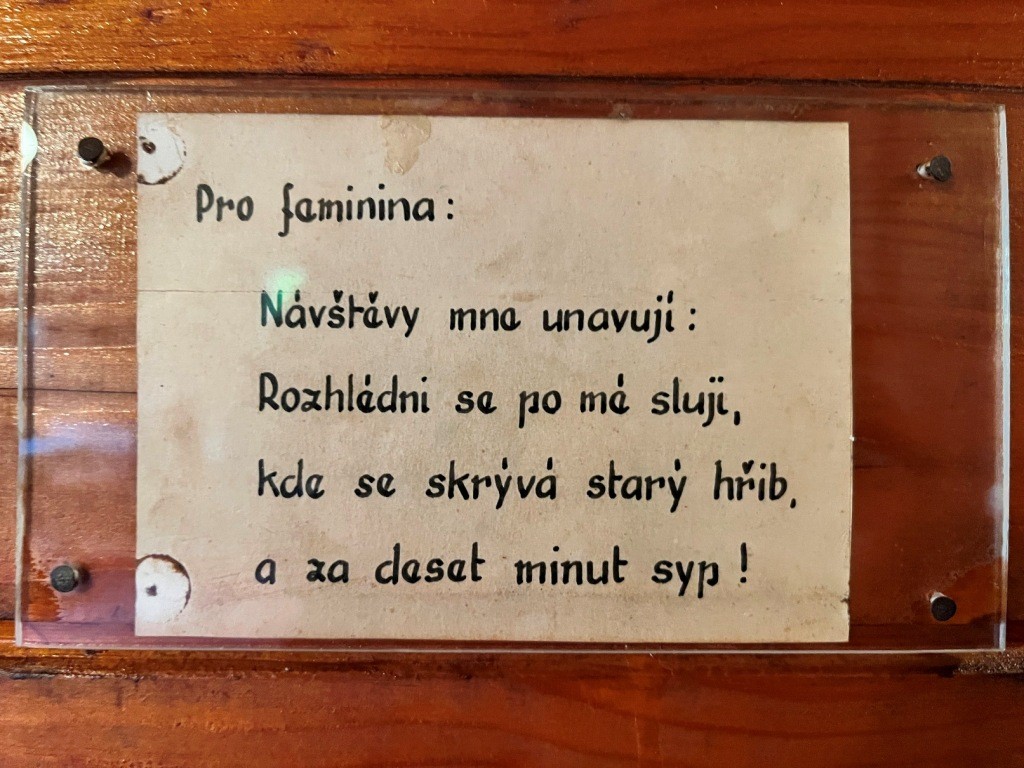 Pro feminina:
Návštěvy mne unavují:
Rozhlédni se po mé sluji,
kde se skrývá starý hřib,
a za deset minut syp!